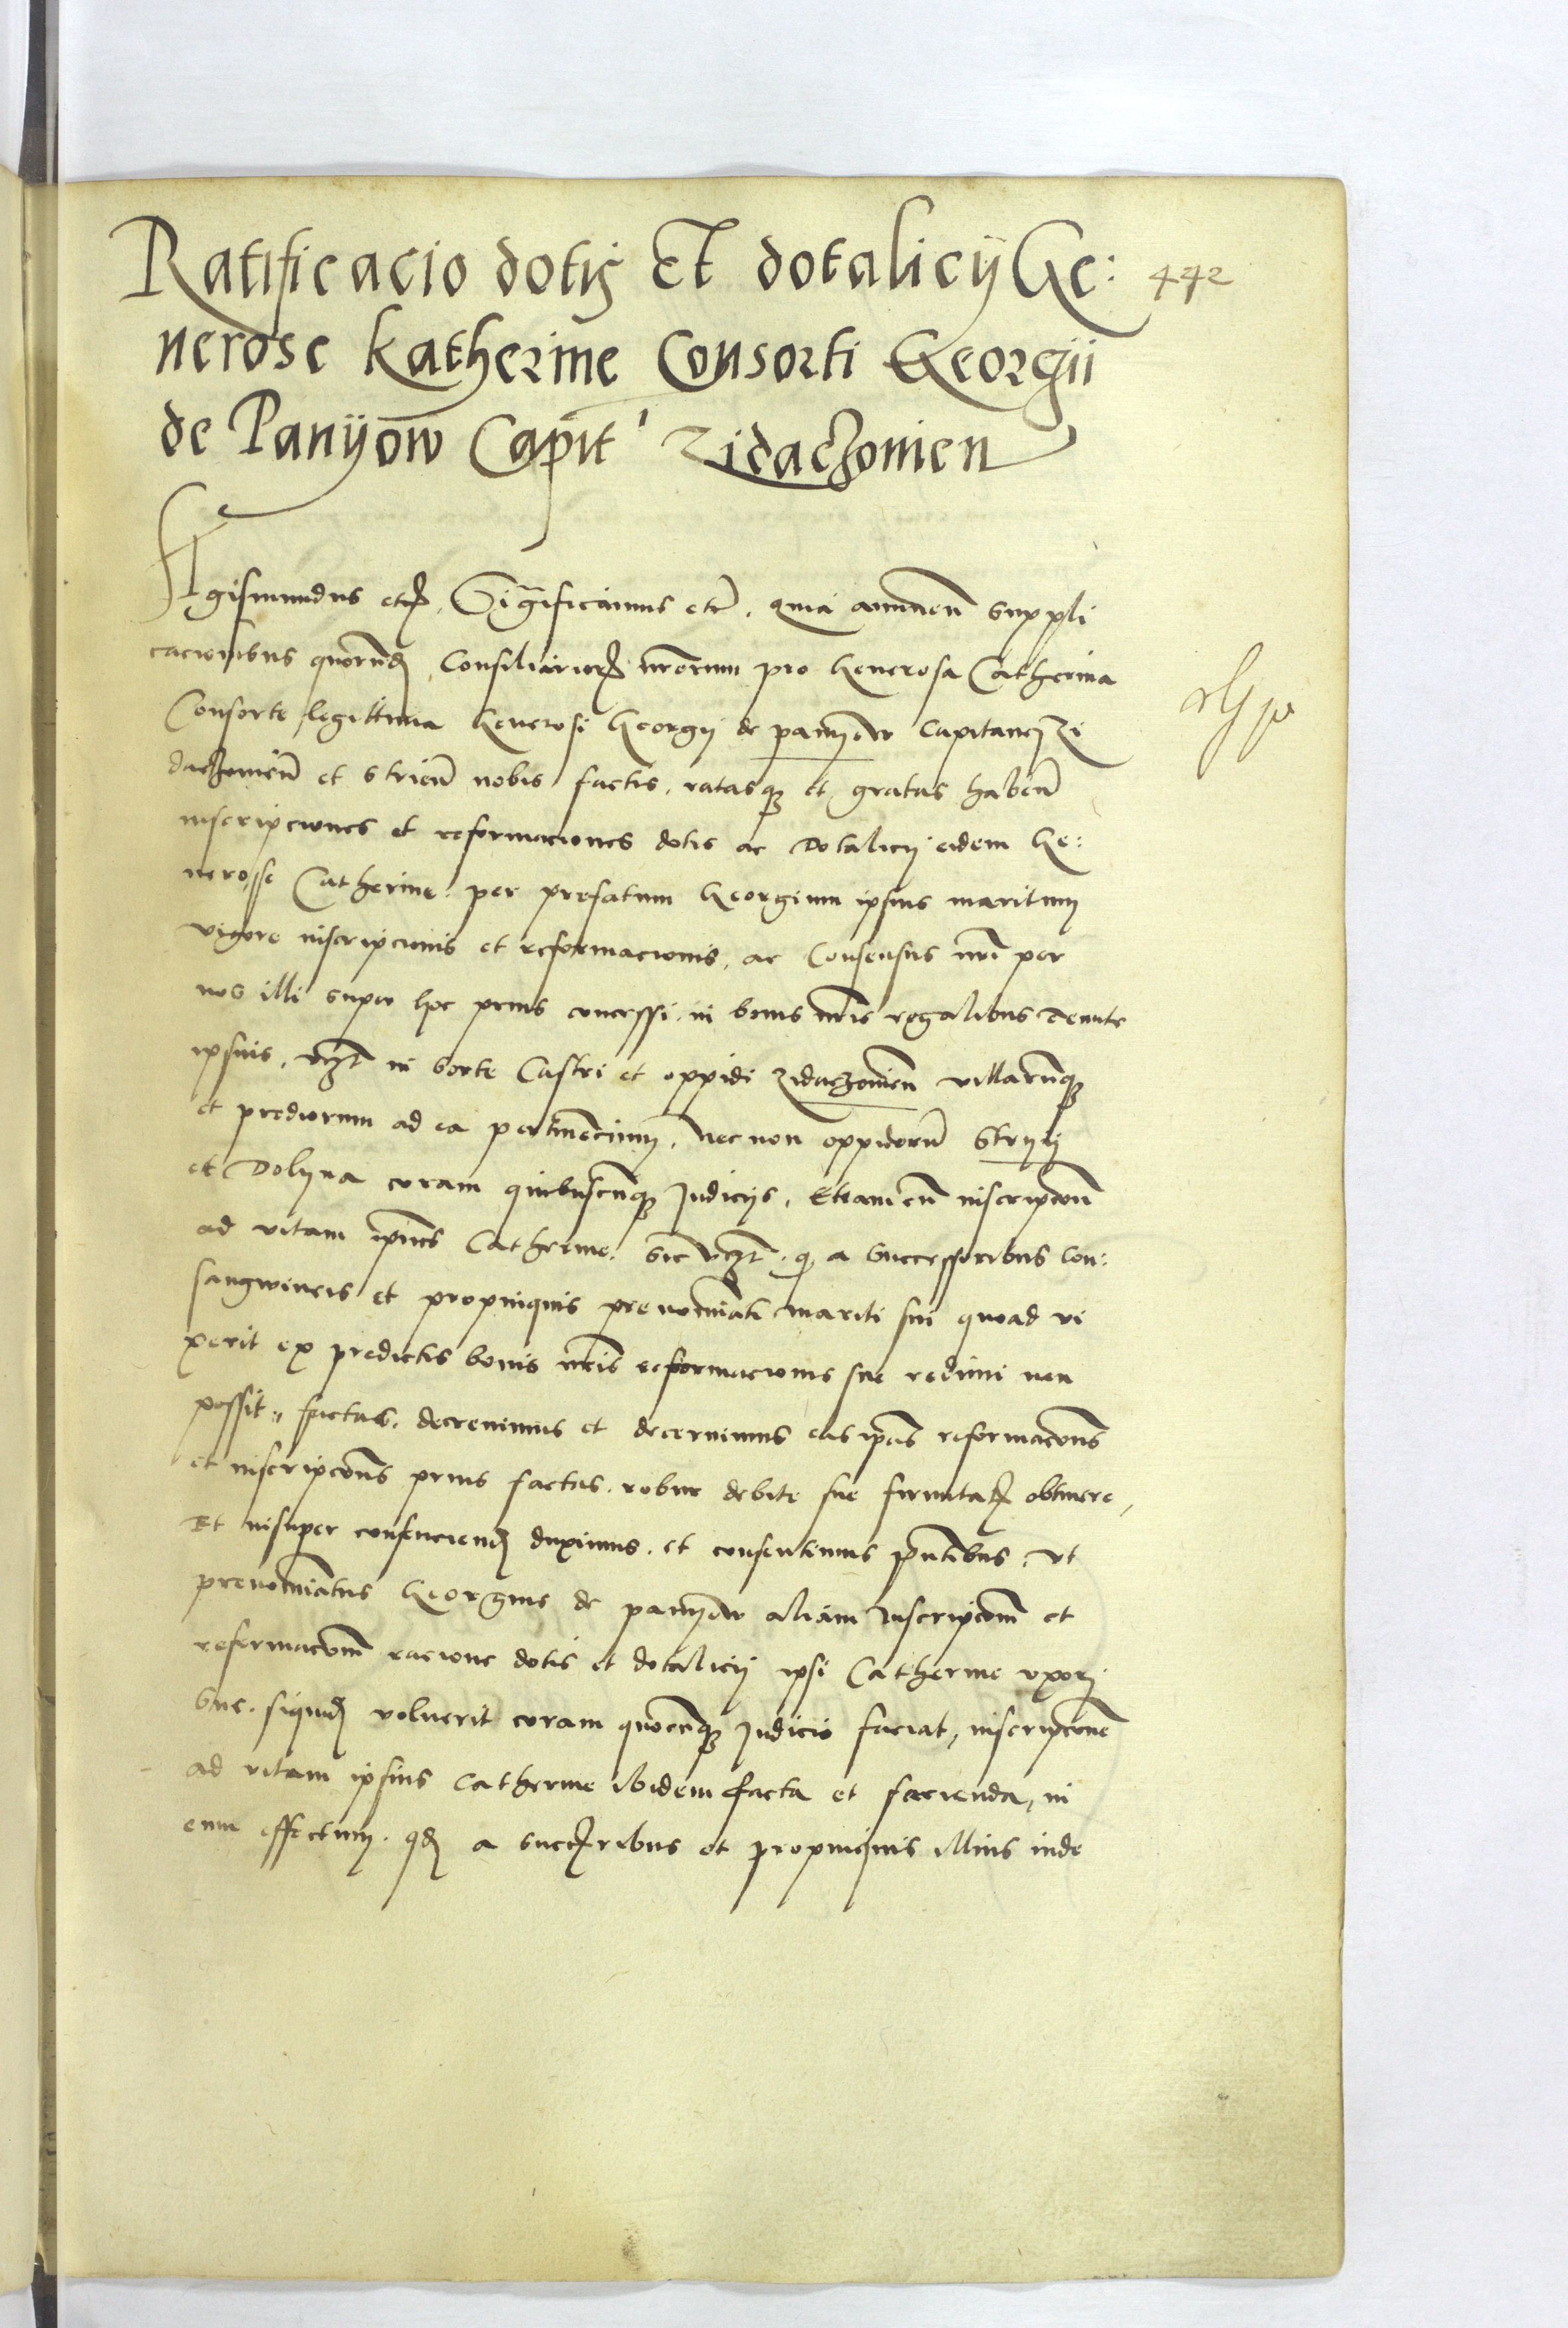 Ratificacio dotis Et dotalicÿ Ge: 442
nerose Katherine Consorti Georgii
de Panÿow Capit' Zidaczowien
Sigismundus etc. Significamus etc. quia annuen suppli
cacionibus quorund Consiliarior nrorum pro Generosa Catherina
Consorte legittima Generosi Georgÿ de panÿow Capitanej Zi
daczowien et Strien nobis factis, ratasq et gratas haben
inscripciones et reformaciones dotis ac Dotalicÿ eidem Ge:
nerosse Catherine per prefatum Georgium ipsius maritum
vigore inscripcionis et reformacionis, ac Consensus nri per
nos illi super hoc prius concessi, in bonis nris regalibus tenute
ipsius, vczt in sorte Castri et oppidi zidaczowien villarumq
et prediorum ad ea pertinencium, Necnon oppidorum Strÿÿ
et Dolÿna coram quibuscunq Judicÿs, Etiam cum inscripcion
ad vitam ipsius Catherine, sic vczt q a Successoribus Con:
sangwineis et propinquis prenominati mariti sui quoad vi
xerit ex predictis bonis nris reformacionis sue redimi non
possit, factas, decrevimus et decernimus eas ipsas reformacions
et inscripcions prius factas, robur debite sue firmitat obtinere,
Et insuper consenciend duximus, et consentimus pntibus, Vt
prenominatus Georgius de panÿow aliam Inscripcionem et
reformacionem racione dotis et dotalicÿ ipsi Catherine vxori
sue, siquid voluerit coram quocunq Judicio faciat, inscripcione
ad vitam ipsius Catherine ibidem facta et facienda, in
eum effectum, qd a succribus et propinquis illius inde